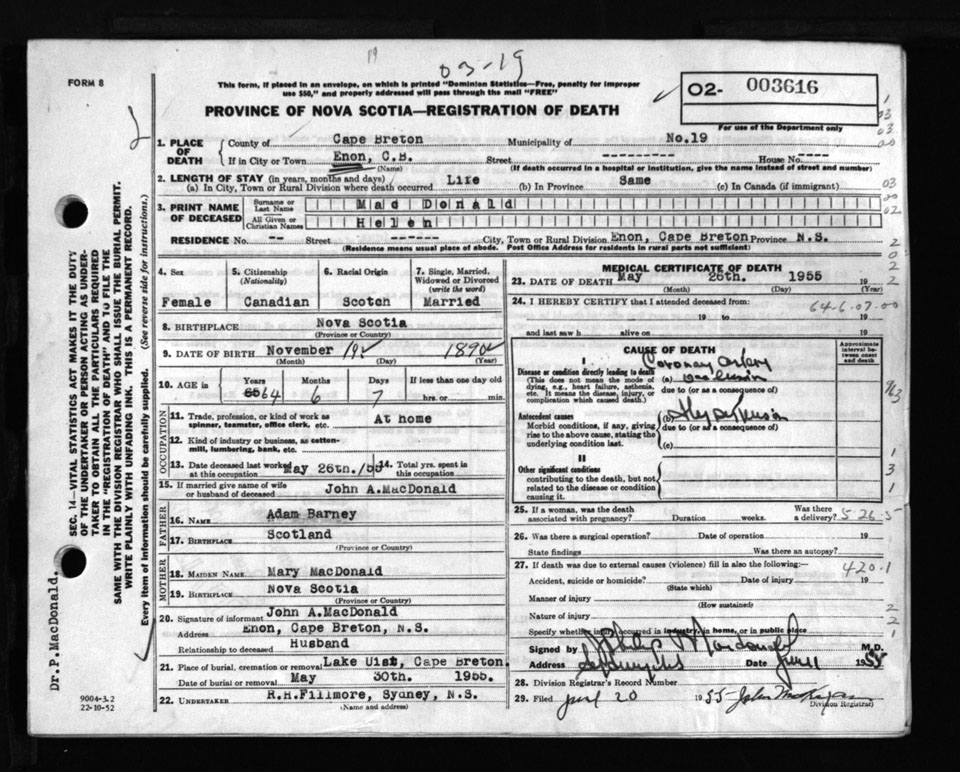 19
03-19
FORM 8
This form, if placed in an envelope, on which is printed "Dominion Statistics—Free, penalty for improper
use $50," and properly addressed will pass through the mail "FREE"
PROVINCE OF NOVA SCOTIA—REGISTRATION OF DEATH
02- 003616
For use of the Department only
1. PLACE OF DEATH
County of Cape Breton Municipality of No.19
If in City or Town Enon, C.B. Street ---------- House No. ----
(Name) (If death occurred in a hospital or institution, give the name instead of street and number)
2. LENGTH OF STAY (in years, months and days)
(a) In City, Town or Rural Division where death occurred Life (b) In Province Same (c) In Canada (if immigrant)
3. PRINT NAME OF DECEASED
Surname or Last Name Mac Donald
All Given or Christian Names Helen
RESIDENCE No. -- Street -- ----- City, Town or Rural Division Enon, Cape Breton Province N.S.
(Residence means usual place of abode. Post Office Address for residents in rural parts not sufficient)
4. Sex
Female
5. Citizenship (Nationality)
Canadian
6. Racial Origin
Scotch
7. Single, Married, Widowed or Divorced (write the word)
Married
8. BIRTHPLACE Nova Scotia
(Province or Country)
9. DATE OF BIRTH November 19 1890
(Month) (Day) (Year)
10. AGE in
Years Months Days If less than one day old
64 6 7 hrs. or min.
OCCUPATION
11. Trade, profession, or kind of work as spinner, teamster, office clerk, etc. At home
12. Kind of industry or business, as cotton-mill, lumbering, bank, etc.
13. Date deceased last worked at this occupation May 26th./55 14. Total yrs. spent in this occupation
15. If married give name of wife or husband of deceased John A.MacDonald
FATHER
16. NAME Adam Barney
17. BIRTHPLACE Scotland
(Province or Country)
MOTHER
18. MAIDEN NAME Mary MacDonald
19. BIRTHPLACE Nova Scotia
(Province or Country)
20. Signature of informant John A.MacDonald
Address Enon, Cape Breton, N.S.
Relationship to deceased Husband
21. Place of burial, cremation or removal Lake Uist, Cape Breton.
Date of burial or removal May 30th. 1955.
22. UNDERTAKER R.H.Fillmore, Sydney, N.S.
(Name and address)
MEDICAL CERTIFICATE OF DEATH
23. DATE OF DEATH May 26th. 1955
(Month) (Day) (Year)
24. I HEREBY CERTIFY that I attended deceased from:
64-6-07-00
19 to 19
and last saw h alive on 19
CAUSE OF DEATH
Approximate interval between onset and death
I
Disease or condition directly leading to death
(This does not mean the mode of dying, e.g., heart failure, asthenia, etc. It means the disease, injury, or complication which caused death.)
(a) Coronary artery occlusion
due to (or as a consequence of)
Antecedent causes
Morbid conditions, if any, giving rise to the above cause, stating the underlying condition last.
(b)
due to (or as a consequence of)
(c)
II
Other significant conditions
contributing to the death, but not related to the disease or condition causing it.
25. If a woman, was the death associated with pregnancy? Duration weeks. Was there a delivery? 5-26-5
26. Was there a surgical operation? Date of operation 19
State findings Was there an autopsy?
27. If death was due to external causes (violence) fill in also the following:— 420.1
Accident, suicide or homicide? Date of injury 19
(State which)
Manner of injury
(How sustained)
Nature of injury
Specify whether injury occurred in industry, in home, or in public place
Signed by Philip Macdonald M.D.
Address Date 1955
28. Division Registrar's Record Number
29. Filed 20 1955
Division Registrar)
SEC. 14—VITAL STATISTICS ACT MAKES IT THE DUTY
OF THE UNDERTAKER OR PERSON ACTING AS UNDER-
TAKER TO OBTAIN ALL THE PARTICULARS REQUIRED
IN THE "REGISTRATION OF DEATH" AND TO FILE THE
SAME WITH THE DIVISION REGISTRAR WHO SHALL ISSUE THE BURIAL PERMIT.
WRITE PLAINLY WITH UNFADING INK. THIS IS A PERMANENT RECORD.
Every item of information should be carefully supplied. (See reverse side for instructions.)
Dr.P.MacDonald.
9004-3.2
22-10-52